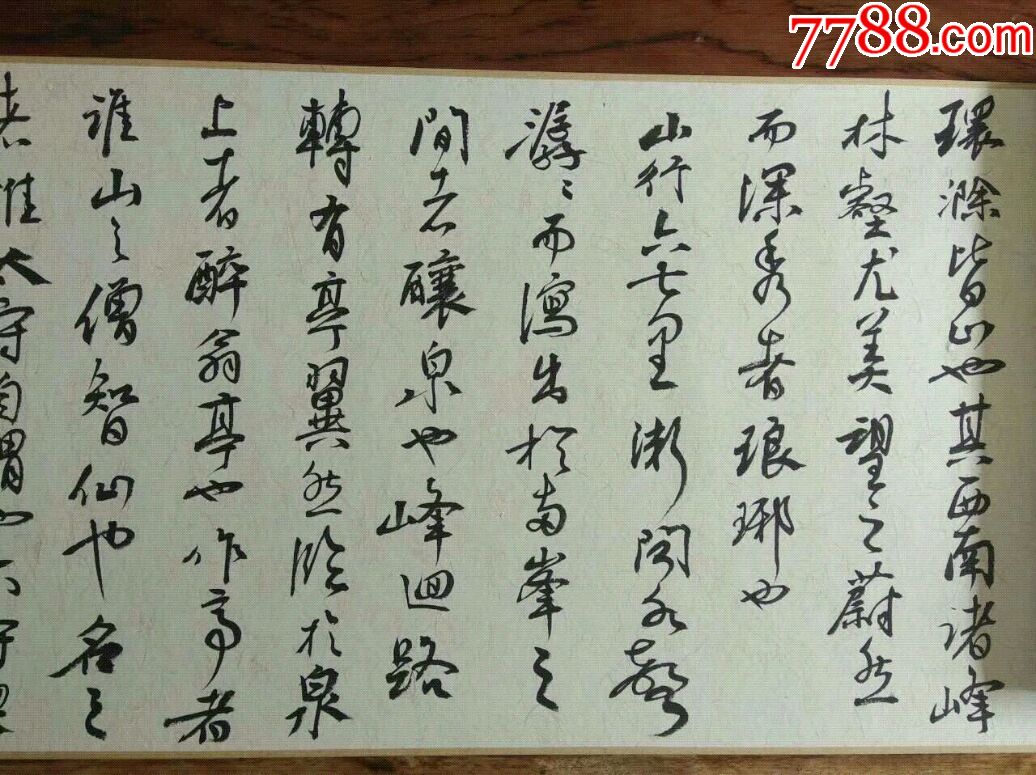 7788.com
環滁皆山也其西南諸峰
林壑尤美望之蔚然
而深秀者琅琊也
山行六七里漸聞水聲
潺〻而瀉出於兩峯之
間者釀泉也峰迴路
轉有亭翼然臨於泉
上者醉翁亭也作亭者
誰山之僧智仙也名之
者誰太守自謂也太守